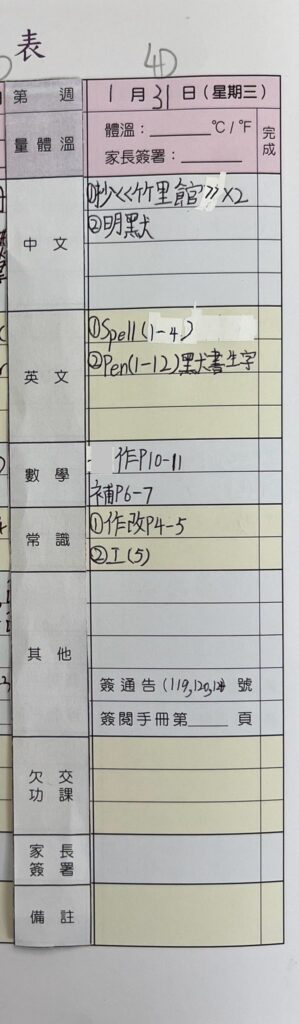 表
4D
第 週 1 月 31 日 (星期三)
量 體 溫 體溫:______℃/℉ 完成
家長簽署:______
中 文 ①抄<<竹里館>>X2
②明默
英 文 ①Spell(1-4)
②Pen(1-12)默書生字
數 學 作P10-11
補P6-7
常 識 ①作改P4-5
②工(5)
其 他
簽通告(119,120, 號
簽閱手冊第_____ 頁
欠 交 功 課
家 長 簽 署
備 註